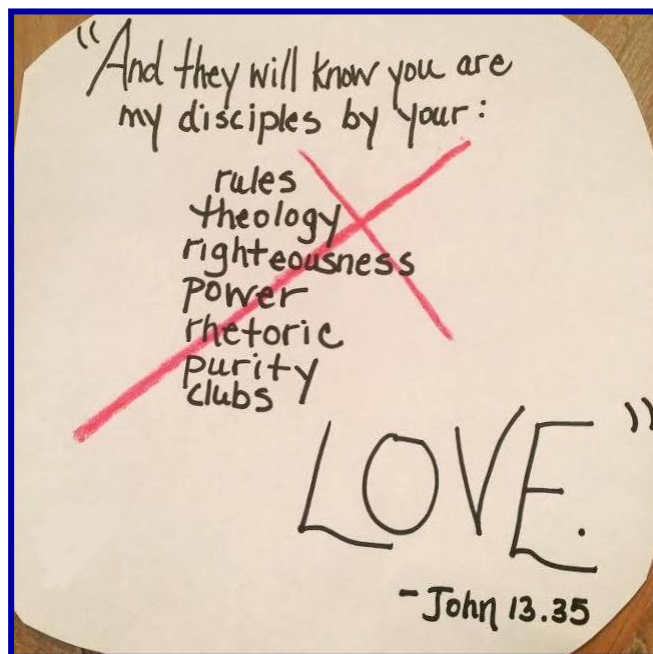 "And they will know you are
my disciples by your:
rules
theology
righteousness
power
rhetoric
purity
clubs
LOVE."
-John 13.35